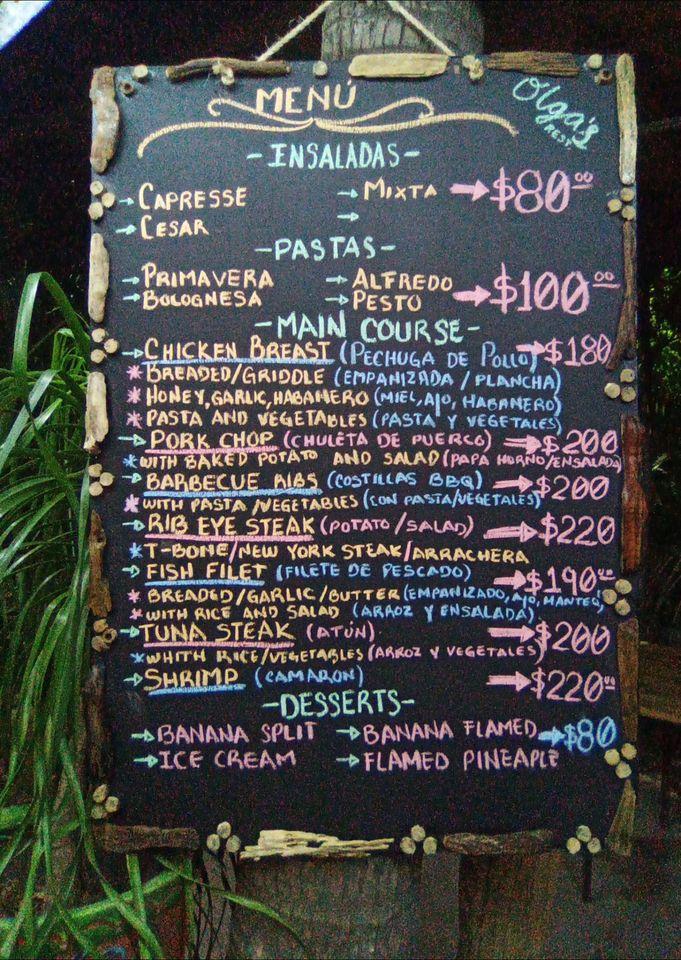 MENÚ
Olga's
REST
-INSALADAS-
→CAPRESSE →MIXTA →$80.00
→CESAR →
-PASTAS-
→PRIMAVERA →ALFREDO
→BOLOGNESA →PESTO →$100.00
-MAIN COURSE-
→CHICKEN BREAST (PECHUGA DE POLLO) →$180
*BREADED/GRIDDLE (EMPANIZADA / PLANCHA)
*HONEY, GARLIC, HABANERO (MIEL, AJO, HABANERO)
*PASTA AND VEGETABLES (PASTA Y VEGETALES)
→PORK CHOP (CHULETA DE PUERCO) →$200
*WITH BAKED POTATO AND SALAD (PAPA HORNO/ENSALADA)
→BARBECUE RIBS (COSTILLAS BBQ) →$200
*WITH PASTA/VEGETABLES (CON PASTA/VEGETALES)
→RIB EYE STEAK (POTATO/SALAD) →$220
*T-BONE/NEW YORK STEAK/ARRACHERA
→FISH FILET (FILETE DE PESCADO) →$190.00
*BREADED/GARLIC/BUTTER (EMPANIZADO, AJO, MANTEQ,
*WITH RICE AND SALAD (ARROZ Y ENSALADA)
→TUNA STEAK (ATÚN) →$200
*WHITH RICE/VEGETABLES (ARROZ Y VEGETALES)
→SHRIMP (CAMARON) →$220.00
-DESSERTS-
→BANANA SPLIT →BANANA FLAMED →$80
→ICE CREAM →FLAMED PINEAPLE